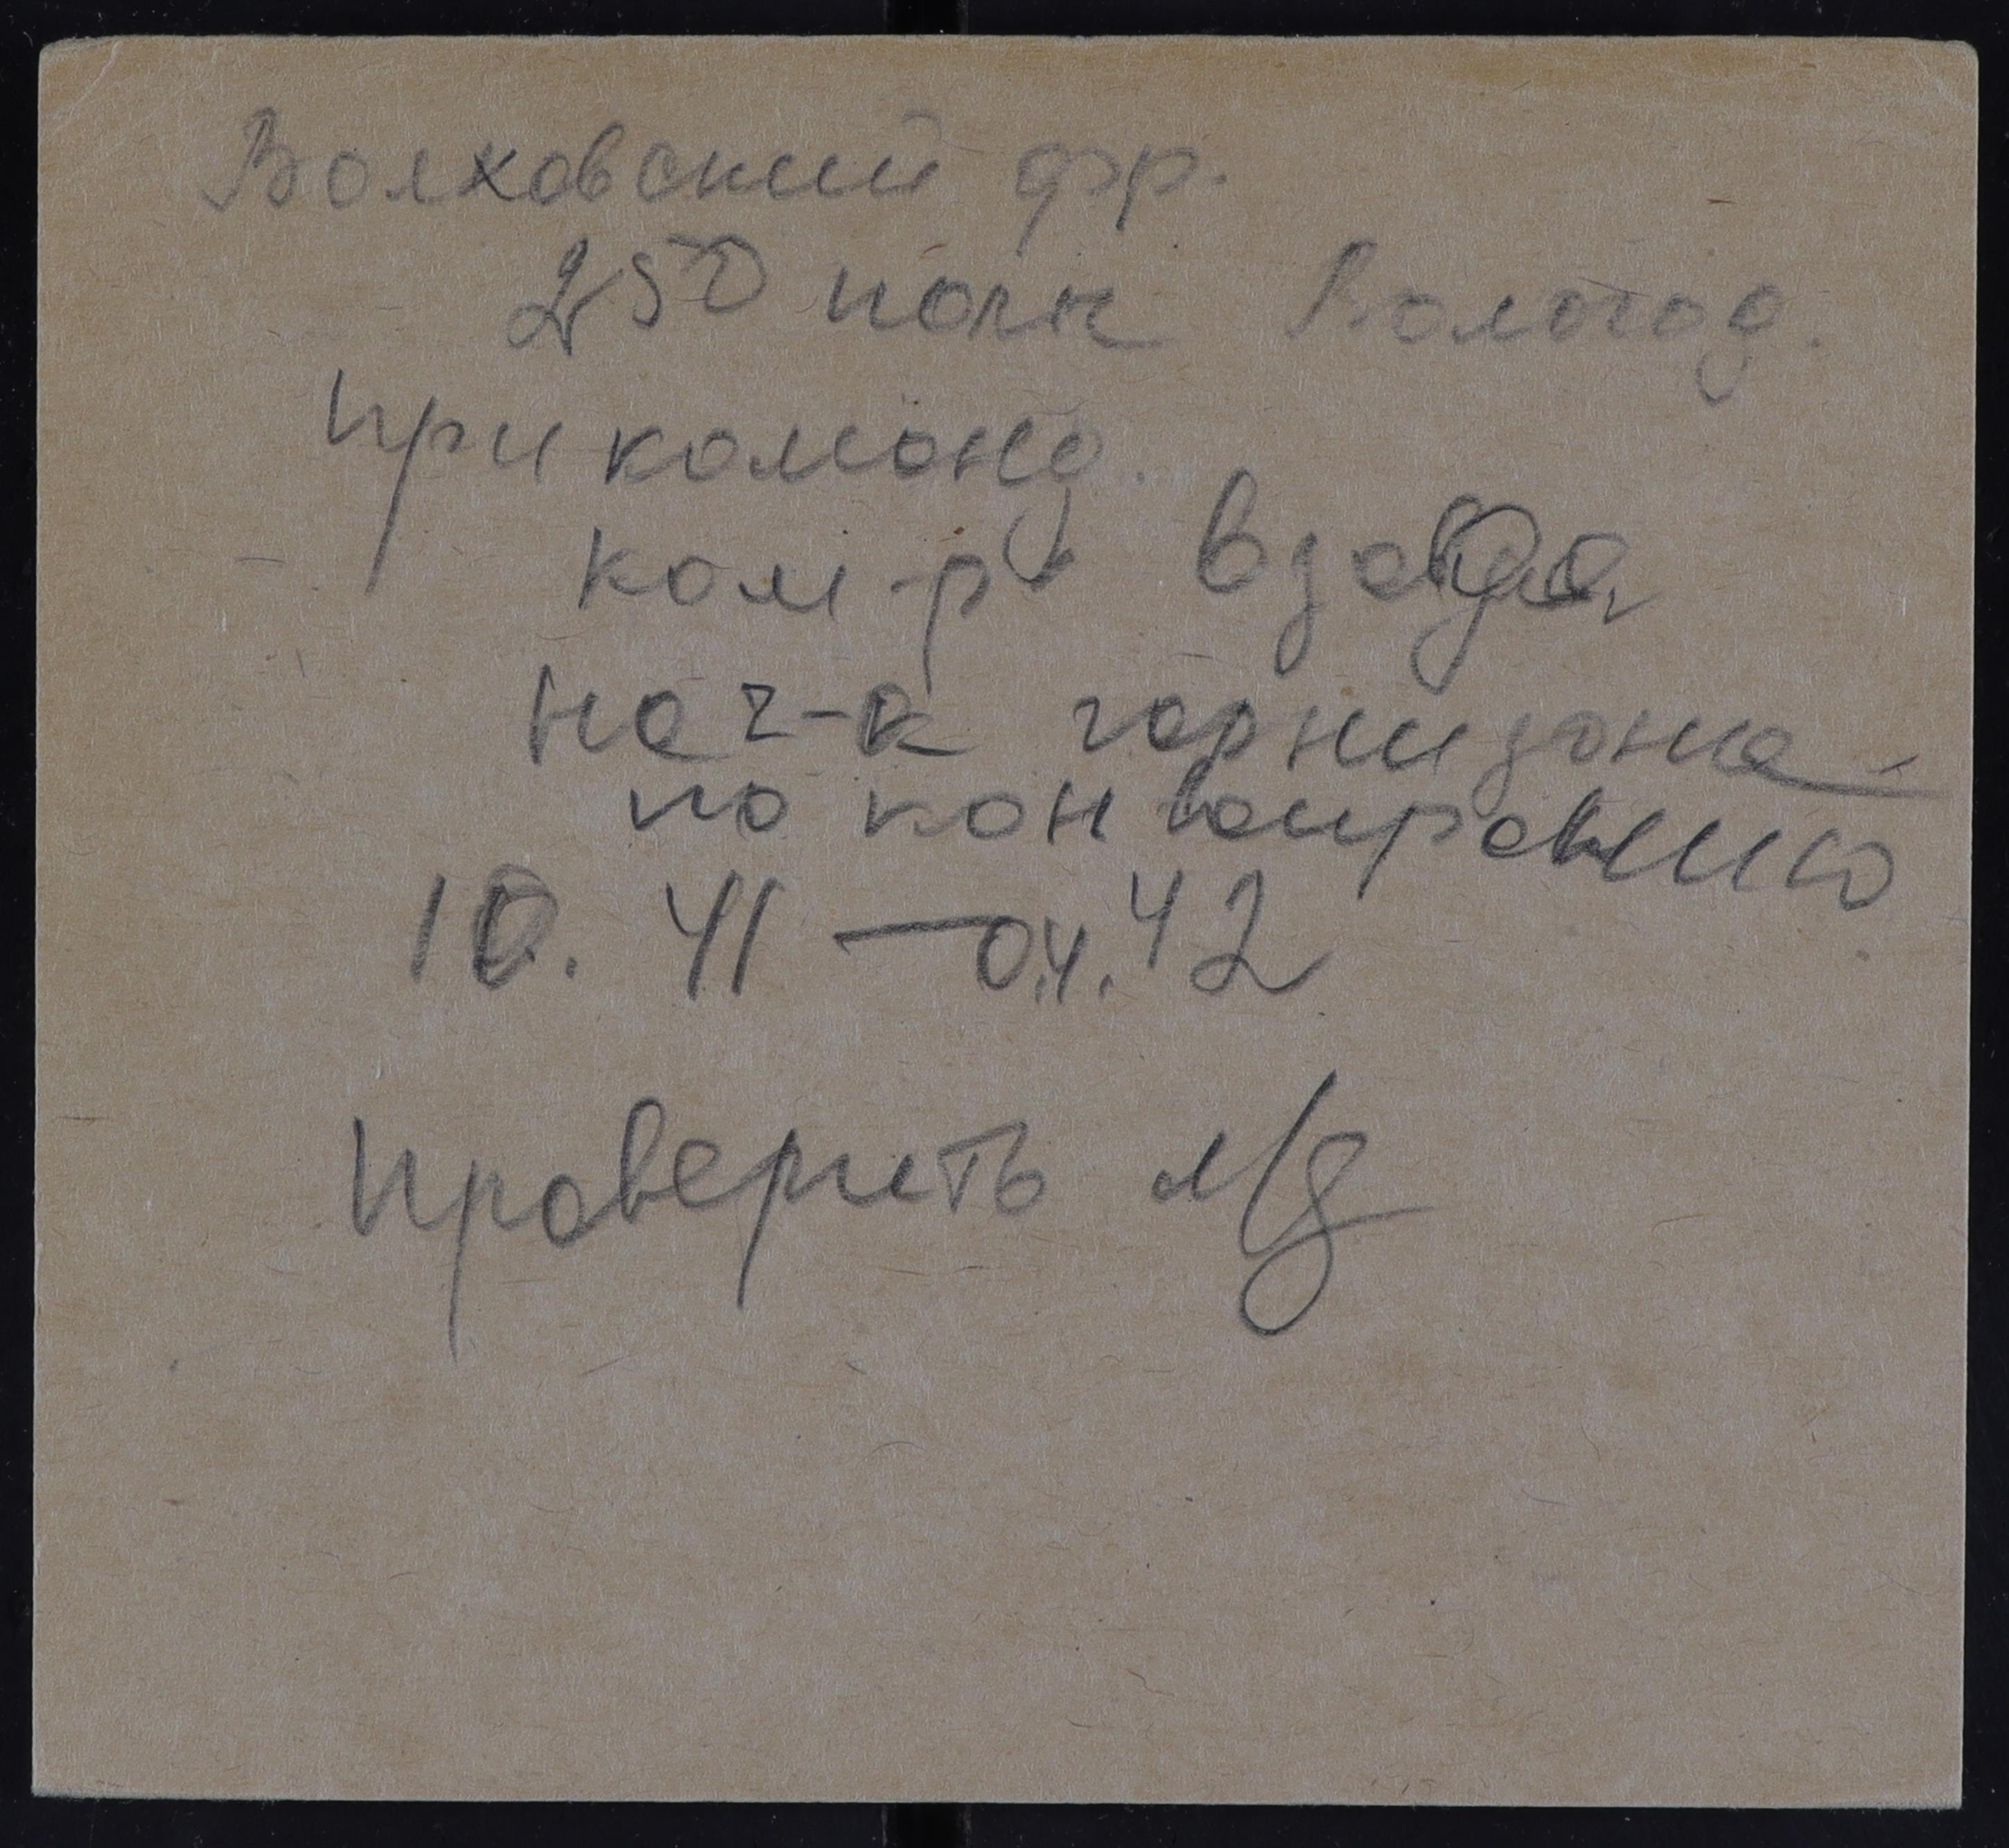 Волховский фр.
250 полк Вологод.
при команд.
ком-р взвода
нач-к гарнизона
по конвоированию
10. 41 — 04. 42
Проверить л/д